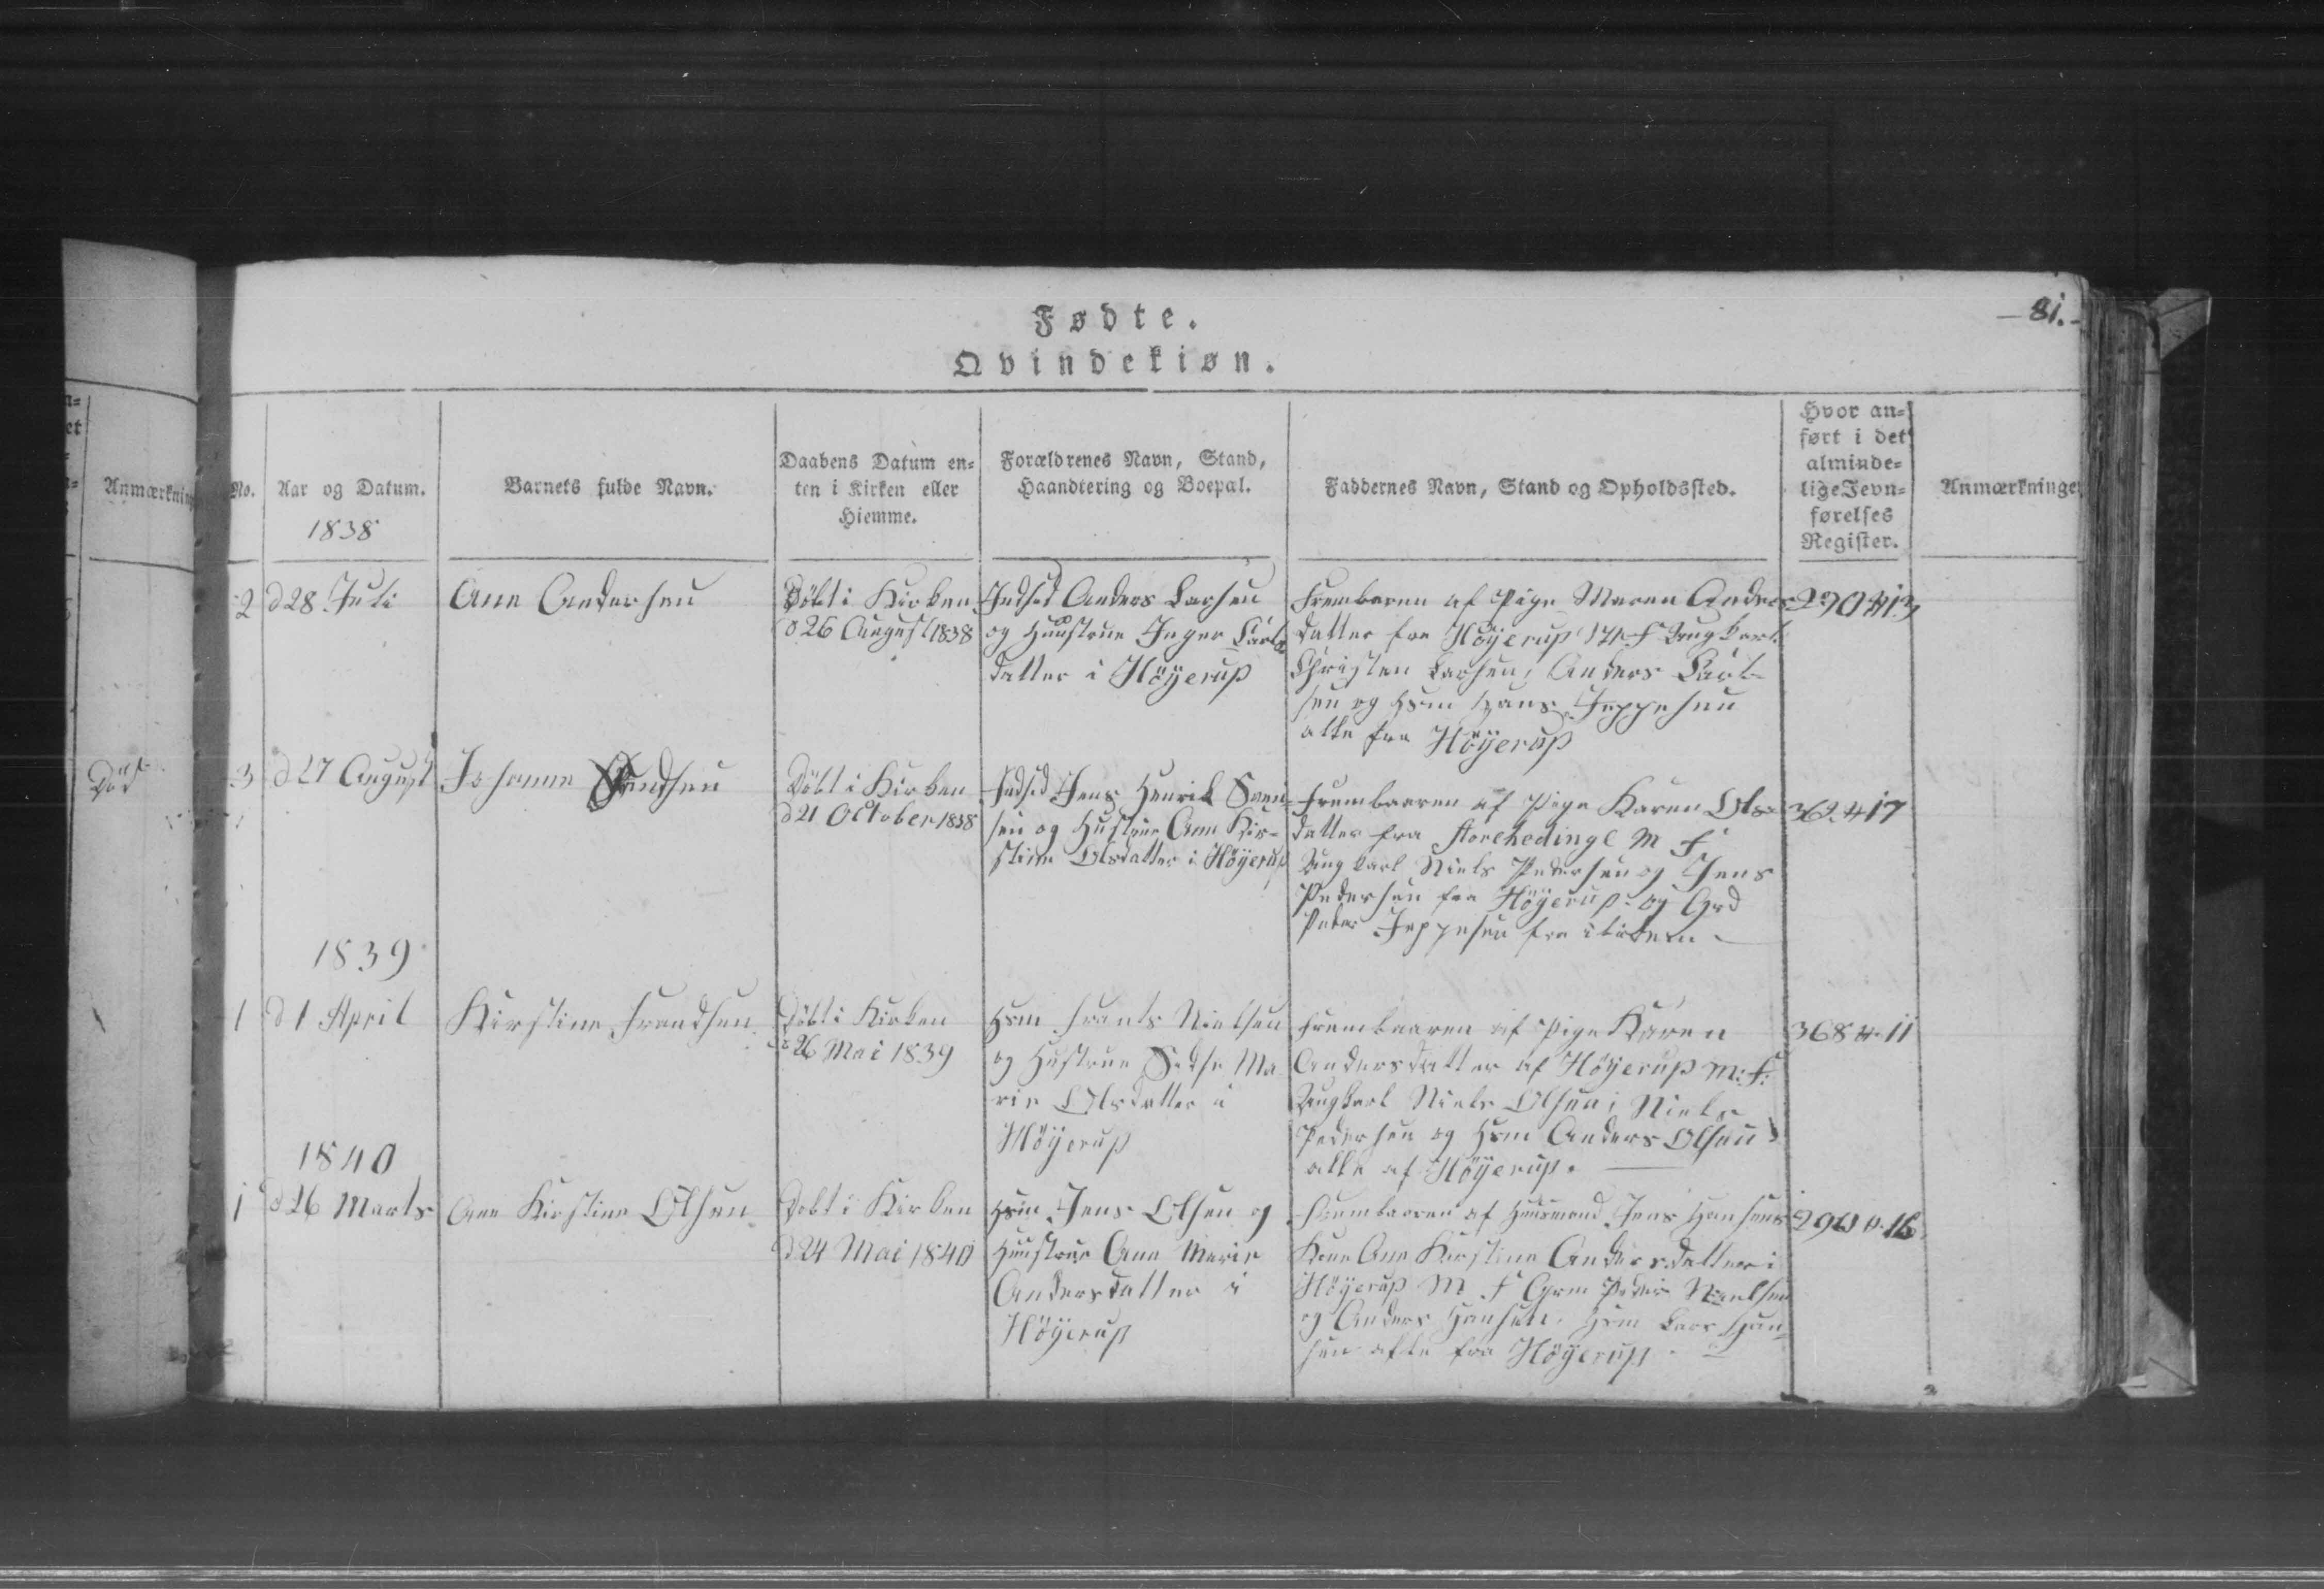 81.
Fødte.
Qvindekiøn.
Anmærkning
No.
Aar og Datum.
1838
Barnets fulde Navn.
Daabens Datum en-
ten i Kirken eller
Hiemme.
Forældrenes Navn, Stand,
Haandtering og Boepæl.
Faddernes Navn, Stand og Opholdssted.
Hvor an-
ført i det
alminde-
lige Jevn-
førelses
Register.
Anmærkninge
2
d 28 Juli
Ane Andersen
Döbt i Kirken
d 26 August 1838
Indsid Anders Larsen
og Huustrue Inger Carls
datter i Höÿerup
Frembaren af Pige Maren Anders
datter fra Höÿerup M F Ungkarl
Christen Larsen, Anders Carl-
sen og Hsm Hans Jeppesen
alle fra Höÿerup
290 # 13
Död
3
d 27 August
Johanne Svendsen
Döbt i Kirken
d 21 October 1838
Indsid Jens Henrik Sven-
sen og Hustrue Ane Kir-
stine Olsdatter i Höÿerup
Frembaaren af Pige Karen Ols-
datter fra Storehedinge M F
Ungkarl Niels Pedersen og Jens
Pedersen fra Höÿerup og Grd
Peder Jeppesen fra ibidem
362 # 17
1839
1
d 1 April
Kirstine Frandsen
Döbt i Kirken
d 26 Mai 1839
Hsm Frants Nielsen
og Hustrue Sidse Ma
rie Olsdatter i
Höÿerup
Frembaaren af Pige Karen
Andersdatter af Höÿerup M: F:
Ungkarl Niels Olsen, Niels
Pedersen og Hsm Anders Olsen
alle af Höÿerup.
368 #. 11
1840
1
d 26 Marts
Ane Kirstine Olsen
Döbt i Kirken
d 24 Mai 1840
Hsm Jens Olsen og
Huustrue Ane Marie
Andersdatter i
Höÿerup
Frembaaren af Huusmand Jens Hansens
Kone Ane Kirstine Andersdatter i
Höÿerup M F Grm Peder Nielsen
og Anders Hansen, Hsm Lars Han-
sen alle fra Höÿerup
290 #. 16.